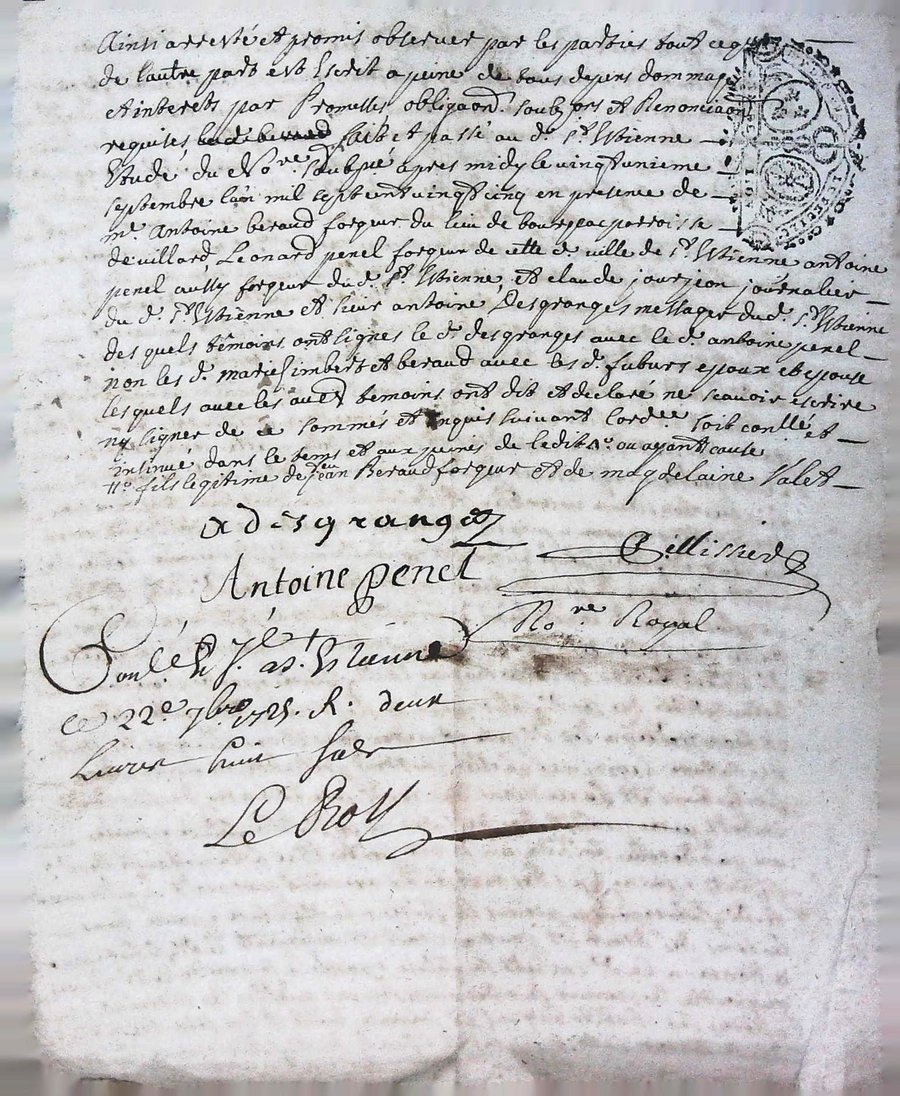 Ainsi arresté et promis observer par les parties tout ce
de lautre part est Escrit a peine de tous depens dommage
et interets par Promesses obligaons soubpns et Renonciaon
requises fait et passé au dt. St. Etienne
Etude du Nore. soubne apres midy le vingtunieme
septembre lan mil sept cent vingt cinq en presence de
me. Antoine beraud forgeur du lieu de parroisse
de villard Leonard penel forgeur de cette d. ville de St. Etienne antoine
penel aussy forgeur dud. St. Etienne, et claude jourjon journalier
du d. St. Etienne et sieur antoine Desgranges messager dud. St. Etienne
des quels témoins ont signés le d. Sr. desgranges avec le d. antoine penel
non les d. mariés imbert et beraud avec les d. futurs epoux et epouse
lesquels avec les autres temoins ont dit et declaré ne scavoir escrire
ny signer de ce sommés et enquis suivant lordce. soit conllé et
insinué dans le tems et aux peines de ledit
fils legitime de jean Beraud forgeur et de magdelaine Valet
adesgranges
Pellissier
Antoine penel
Nore. Royal
Conlé. St. Etienne
ce 22e 7bre 1725. R. deux
Livres huit sols
Le Roy